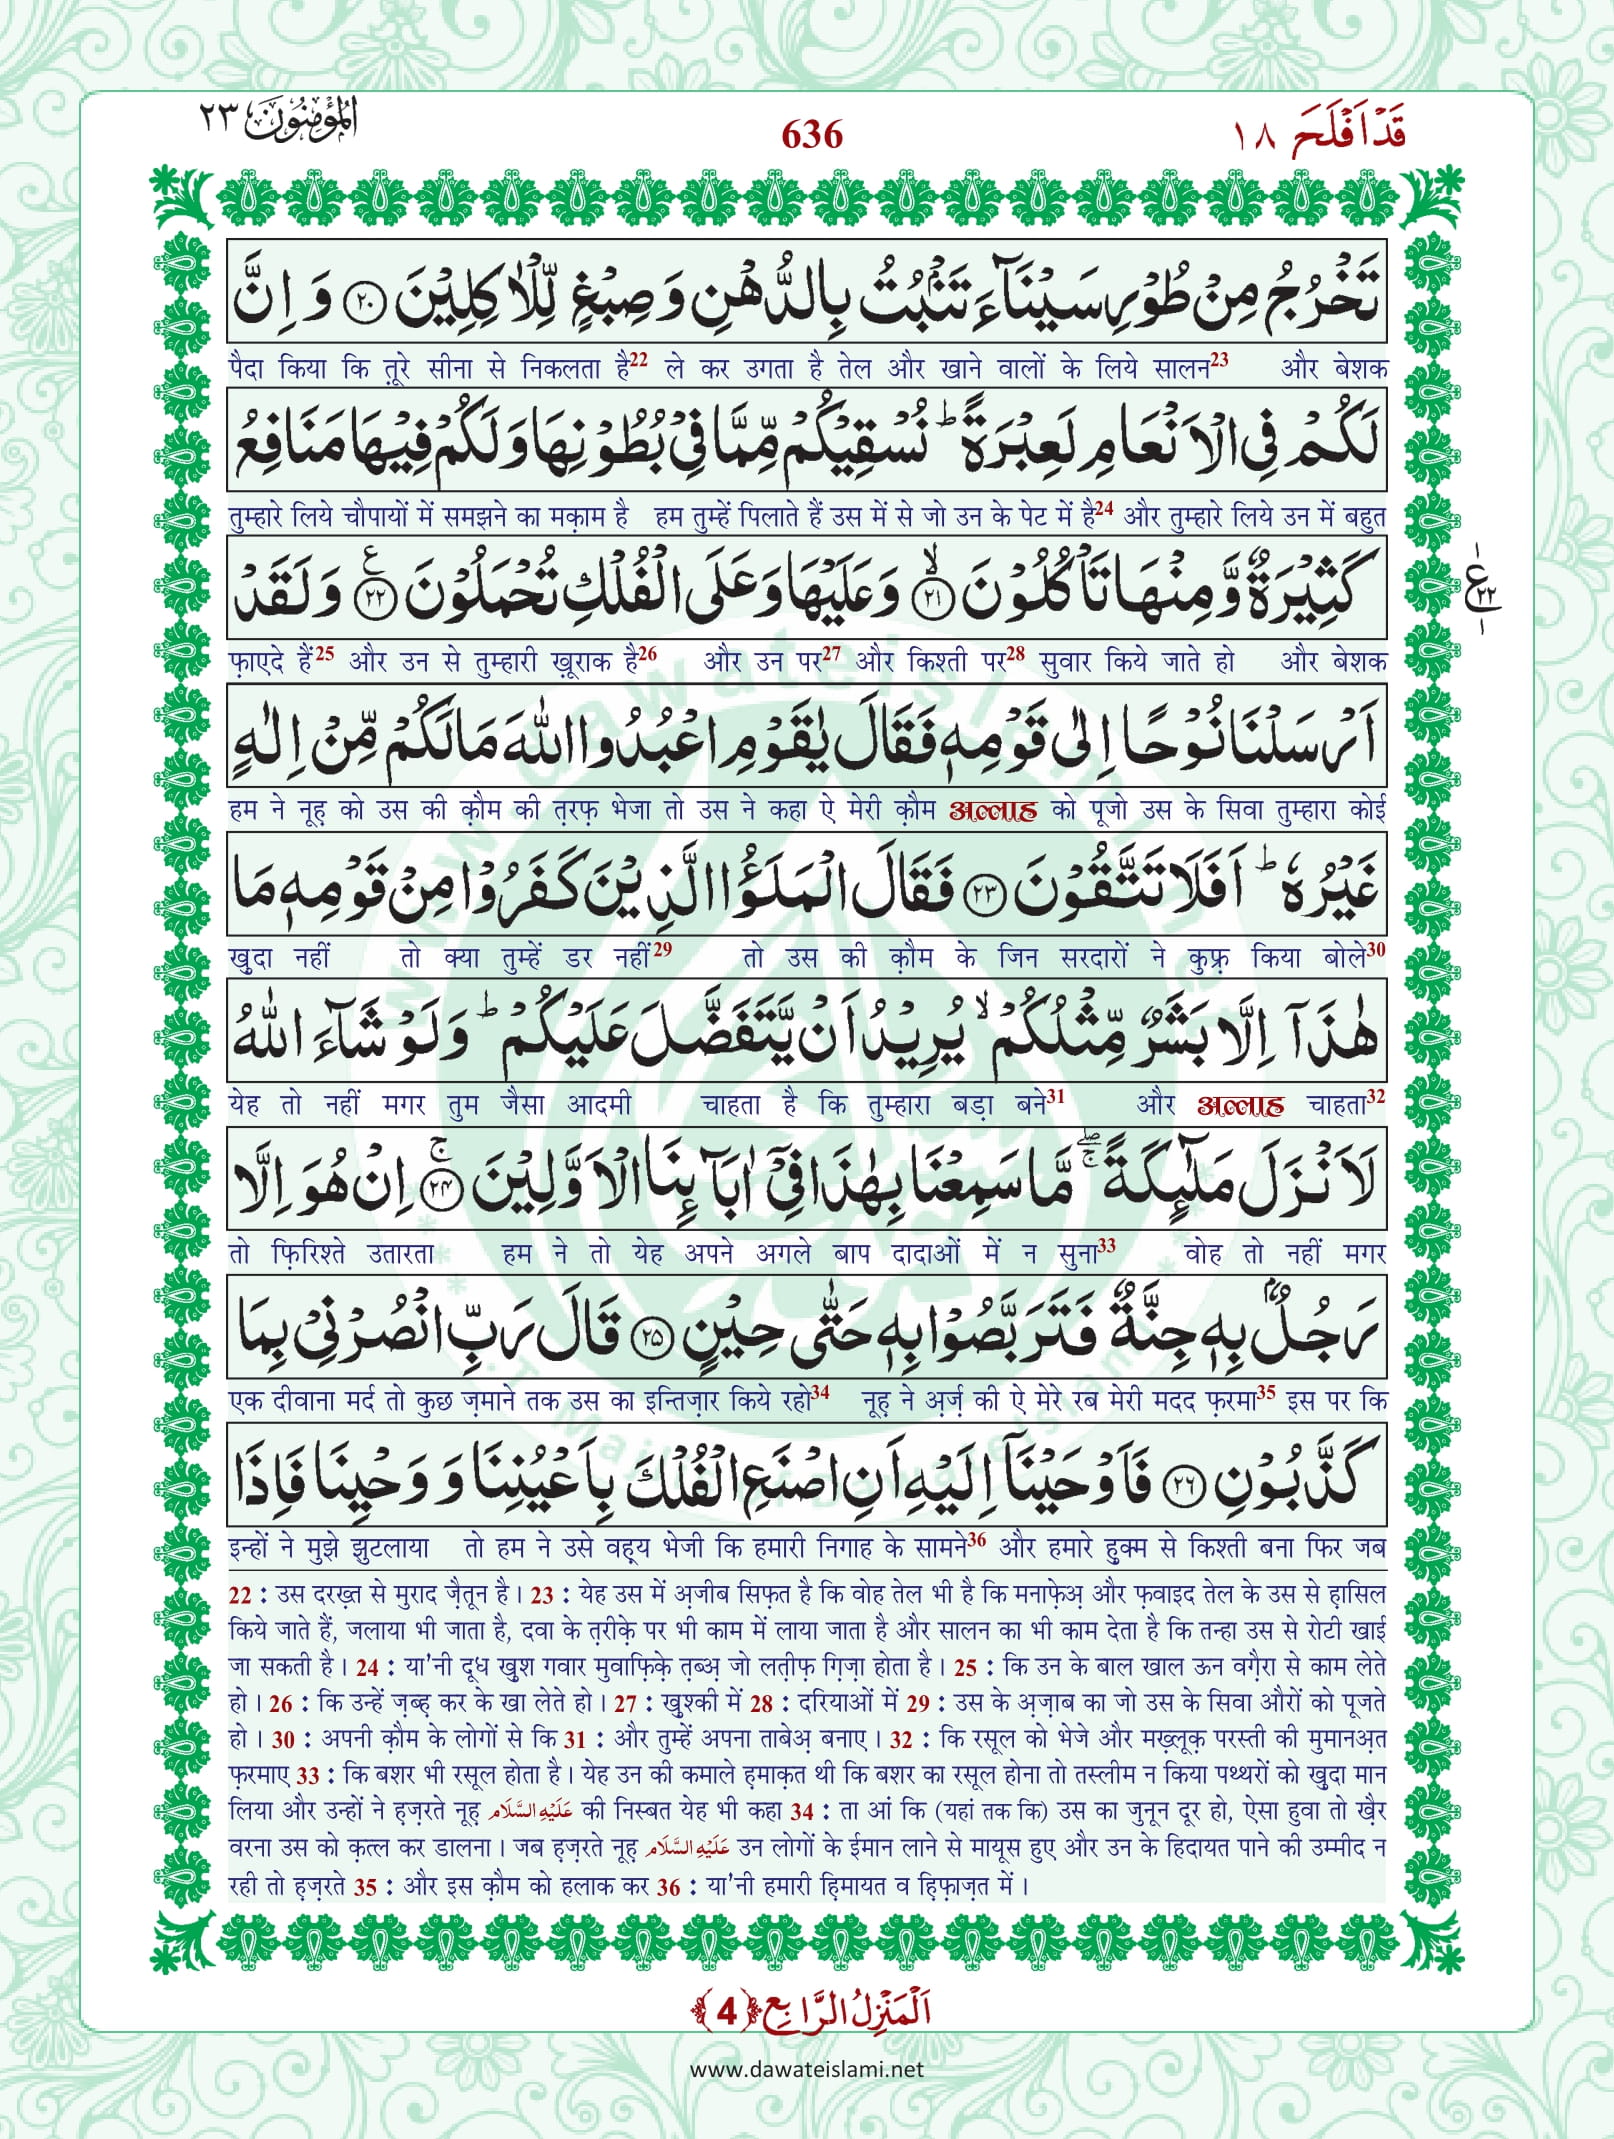 قَدْ اَفْلَحَ ١٨
636
الْمُؤْمِنُوْنَ ٢٣
تَخْرُجُ مِنْ طُوْرِ سَيْنَآءَ تَنْۢبُتُ بِالدُّهْنِ وَ صِبْغٍ لِّلْاٰكِلِيْنَ ﴿٢٠﴾ وَ اِنَّ
पैदा किया कि त़ूरे सीना से निकलता है22 ले कर उगता है तेल और खाने वालों के लिये सालन23 और बेशक
لَكُمْ فِی الْاَنْعَامِ لَعِبْرَةً ؕ نُسْقِيْكُمْ مِّمَّا فِیْ بُطُوْنِهَا وَ لَكُمْ فِيْهَا مَنَافِعُ
तुम्हारे लिये चौपायों में समझने का मक़ाम है हम तुम्हें पिलाते हैं उस में से जो उन के पेट में है24 और तुम्हारे लिये उन में बहुत
كَثِيْرَةٌ وَّ مِنْهَا تَاْكُلُوْنَ ﴿٢١﴾ۙ وَ عَلَيْهَا وَ عَلَی الْفُلْكِ تُحْمَلُوْنَ ﴿٢٢﴾ع وَ لَقَدْ
١ ع ٢٢ ١
फ़ाएदे हैं25 और उन से तुम्हारी ख़ूराक है26 और उन पर27 और किश्ती पर28 सुवार किये जाते हो और बेशक
اَرْسَلْنَا نُوْحًا اِلٰی قَوْمِهٖ فَقَالَ يٰقَوْمِ اعْبُدُوا اللّٰهَ مَا لَكُمْ مِّنْ اِلٰهٍ
हम ने नूह़ को उस की क़ौम की त़रफ़ भेजा तो उस ने कहा ऐ मेरी क़ौम अल्लाह को पूजो उस के सिवा तुम्हारा कोई
غَيْرُهٗ ؕ اَفَلَا تَتَّقُوْنَ ﴿٢٣﴾ فَقَالَ الْمَلَؤُا الَّذِيْنَ كَفَرُوْا مِنْ قَوْمِهٖ مَا
ख़ुदा नहीं तो क्या तुम्हें डर नहीं29 तो उस की क़ौम के जिन सरदारों ने कुफ़्र किया बोले30
هٰذَاۤ اِلَّا بَشَرٌ مِّثْلُكُمْ ۙ يُرِيْدُ اَنْ يَّتَفَضَّلَ عَلَيْكُمْ ؕ وَ لَوْ شَآءَ اللّٰهُ
येह तो नहीं मगर तुम जैसा आदमी चाहता है कि तुम्हारा बड़ा बने31 और अल्लाह चाहता32
لَاَنْزَلَ مَلٰٓىِٕكَةً ۖۚ مَّا سَمِعْنَا بِهٰذَا فِیْۤ اٰبَآىِٕنَا الْاَوَّلِيْنَ ﴿٢٤﴾ۚ اِنْ هُوَ اِلَّا
तो फ़िरिश्ते उतारता हम ने तो येह अपने अगले बाप दादाओं में न सुना33 वोह तो नहीं मगर
رَجُلٌۢ بِهٖ جِنَّةٌ فَتَرَبَّصُوْا بِهٖ حَتّٰی حِيْنٍ ﴿٢٥﴾ قَالَ رَبِّ انْصُرْنِیْ بِمَا
एक दीवाना मर्द तो कुछ ज़माने तक उस का इन्तिज़ार किये रहो34 नूह़ ने अ़र्ज़ की ऐ मेरे रब मेरी मदद फ़रमा35 इस पर कि
كَذَّبُوْنِ ﴿٢٦﴾ فَاَوْحَيْنَاۤ اِلَيْهِ اَنِ اصْنَعِ الْفُلْكَ بِاَعْيُنِنَا وَ وَحْيِنَا فَاِذَا
इन्हों ने मुझे झुटलाया तो हम ने उसे वह़्य भेजी कि हमारी निगाह के सामने36 और हमारे हुक्म से किश्ती बना फिर जब
22 : उस दरख़्त से मुराद ज़ैतून है। 23 : येह उस में अ़जीब सिफ़त है कि वोह तेल भी है कि मनाफ़ेअ़ और फ़वाइद तेल के उस से ह़ासिल
किये जाते हैं, जलाया भी जाता है, दवा के त़रीक़े पर भी काम में लाया जाता है और सालन का भी काम देता है कि तन्हा उस से रोटी खाई
जा सकती है। 24 : या'नी दूध ख़ुश गवार मुवाफ़िक़े त़ब्अ़ जो लत़ीफ़ ग़िज़ा होता है। 25 : कि उन के बाल खाल ऊन वग़ैरा से काम लेते
हो। 26 : कि उन्हें ज़ब्ह़ कर के खा लेते हो। 27 : ख़ुश्की में 28 : दरियाओं में 29 : उस के अ़ज़ाब का जो उस के सिवा औरों को पूजते
हो। 30 : अपनी क़ौम के लोगों से कि 31 : और तुम्हें अपना ताबेअ़ बनाए। 32 : कि रसूल को भेजे और मख़्लूक़ परस्ती की मुमानअ़त
फ़रमाए 33 : कि बशर भी रसूल होता है। येह उन की कमाले ह़माक़त थी कि बशर का रसूल होना तो तस्लीम न किया पथ्थरों को ख़ुदा मान
लिया और उन्हों ने ह़ज़रते नूह़ عَلَيْهِ السَّلَام की निस्बत येह भी कहा 34 : ता आं कि (यहां तक कि) उस का जुनून दूर हो, ऐसा हुवा तो ख़ैर
वरना उस को क़त्ल कर डालना। जब ह़ज़रते नूह़ عَلَيْهِ السَّلَام उन लोगों के ईमान लाने से मायूस हुए और उन के हिदायत पाने की उम्मीद न
रही तो ह़ज़रते 35 : और इस क़ौम को हलाक कर 36 : या'नी हमारी ह़िमायत व ह़िफ़ाज़त में।
اَلْمَنْزِلُ الرَّابِع ﴿4﴾
www.dawateislami.net